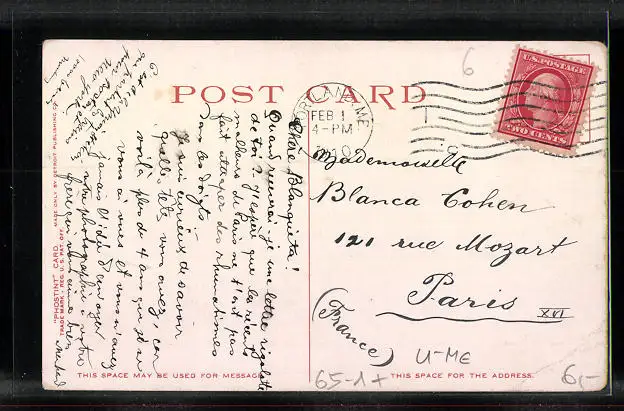 POST CARD
PORTLAND, ME.
FEB 1
4-PM
1910
U.S. POSTAGE
TWO CENTS
6
Chère Blanquita!
Quand recevrai-je une lettre rigolote
de toi? J'espère que les récents
malheurs de Paris ne t'ont pas
fait attraper des rhumatismes
dans les doigts.
Je suis curieux de savoir
quelle tête vous avez, car
voilà plus de 4 ans que je
vous ai vues et vous n'avez
jamais l'idée d'envoyer
votre photographie. Votre
frère qui vous aime bien
Mademoiselle
Blanca Cohen
121 rue Mozart
Paris XVI
(France)
U-ME
65-1+
6,-
"PHOSTINT" CARD
TRADE MARK - REG. U.S. PAT. OFF.
MADE ONLY BY DETROIT PUBLISHING CO.
THIS SPACE MAY BE USED FOR MESSAGE
THIS SPACE FOR THE ADDRESS.